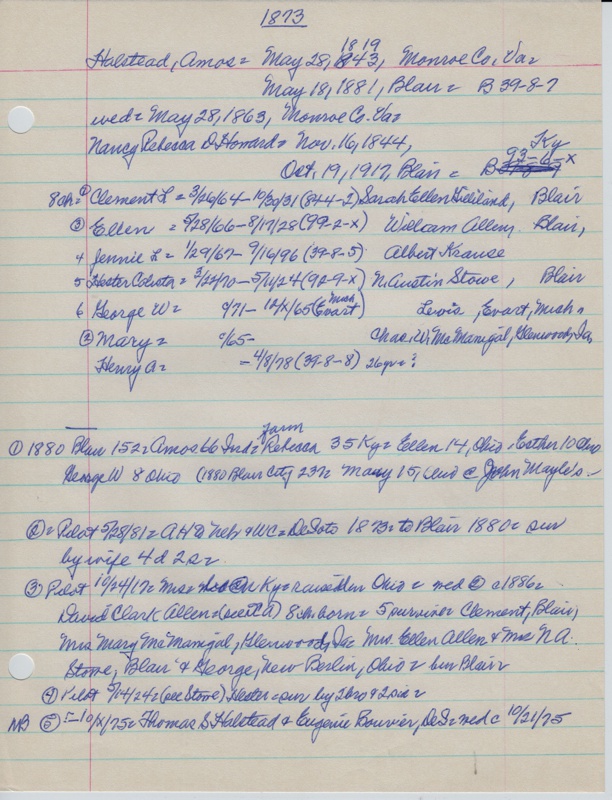 1873
1819
Halstead, Amos = May 28, 1843, Monroe Co, Va =
May 18, 1881, Blair = B 39-8-7
wed = May 28, 1863, Monroe Co. Va =
Nancy Rebecca D. Howard = Nov. 16, 1844, Ky
Oct. 19, 1917, Blair = B 93-6-x
8 ch = ① Clement L = 3/26/64 - 10/30/31 (844-2) Sarah Ellen Gilliland, Blair
③ Ellen = 5/28/66 - 8/17/28 (99-2-x) William Allen, Blair,
4 Jennie L = 1/29/67 - 9/16/96 (39-8-5) Albert Krause
5 Hester = 3/22/70 - 5/11/24 (92-9-x) N. Austin Stowe, Blair
6 George W = c/71 - 12/x/65 (Evart Mich) Lewis, Evart, Mich =
② Mary = c/65 - Chas. W. McManigal, Glenwood, Ia,
Henry A = = 4/8/78 (39-8-8) 26 yr = ?
farm
① 1880 Blair 152 = Amos 66 Ind = Rebecca 35 Ky = Ellen 14, Ohio = Esther 10 Ohio
George W 8 Ohio (1880 Blair City 232 = Mary 15, Ohio @ John Maylo's -
② = Pilot 5/28/81 = A H to Neb & WC = DeSoto 1873 = to Blair 1880 = sur
by wife 4 d 2 s =
③ Pilot 10/24/17 = Mrs = Ky = raised in Ohio = wed ② c 1886 =
David Clark Allen = (dec'd) 8 ch born = 5 survive = Clement, Blair,
Mrs Mary McManigal, Glenwood, Ia = Mrs. Ellen Allen & Mrs N A
Stowe, Blair & George, New Berlin, Ohio = bur Blair
④ Pilot 5/14/24 = (see Stowe) Hester = sur by 2 bro & 2 sis =
NB ⑤ = - 10/x/75 = Thomas S Halstead & Eugenie Bouvier, DeS = wed c 10/21/75